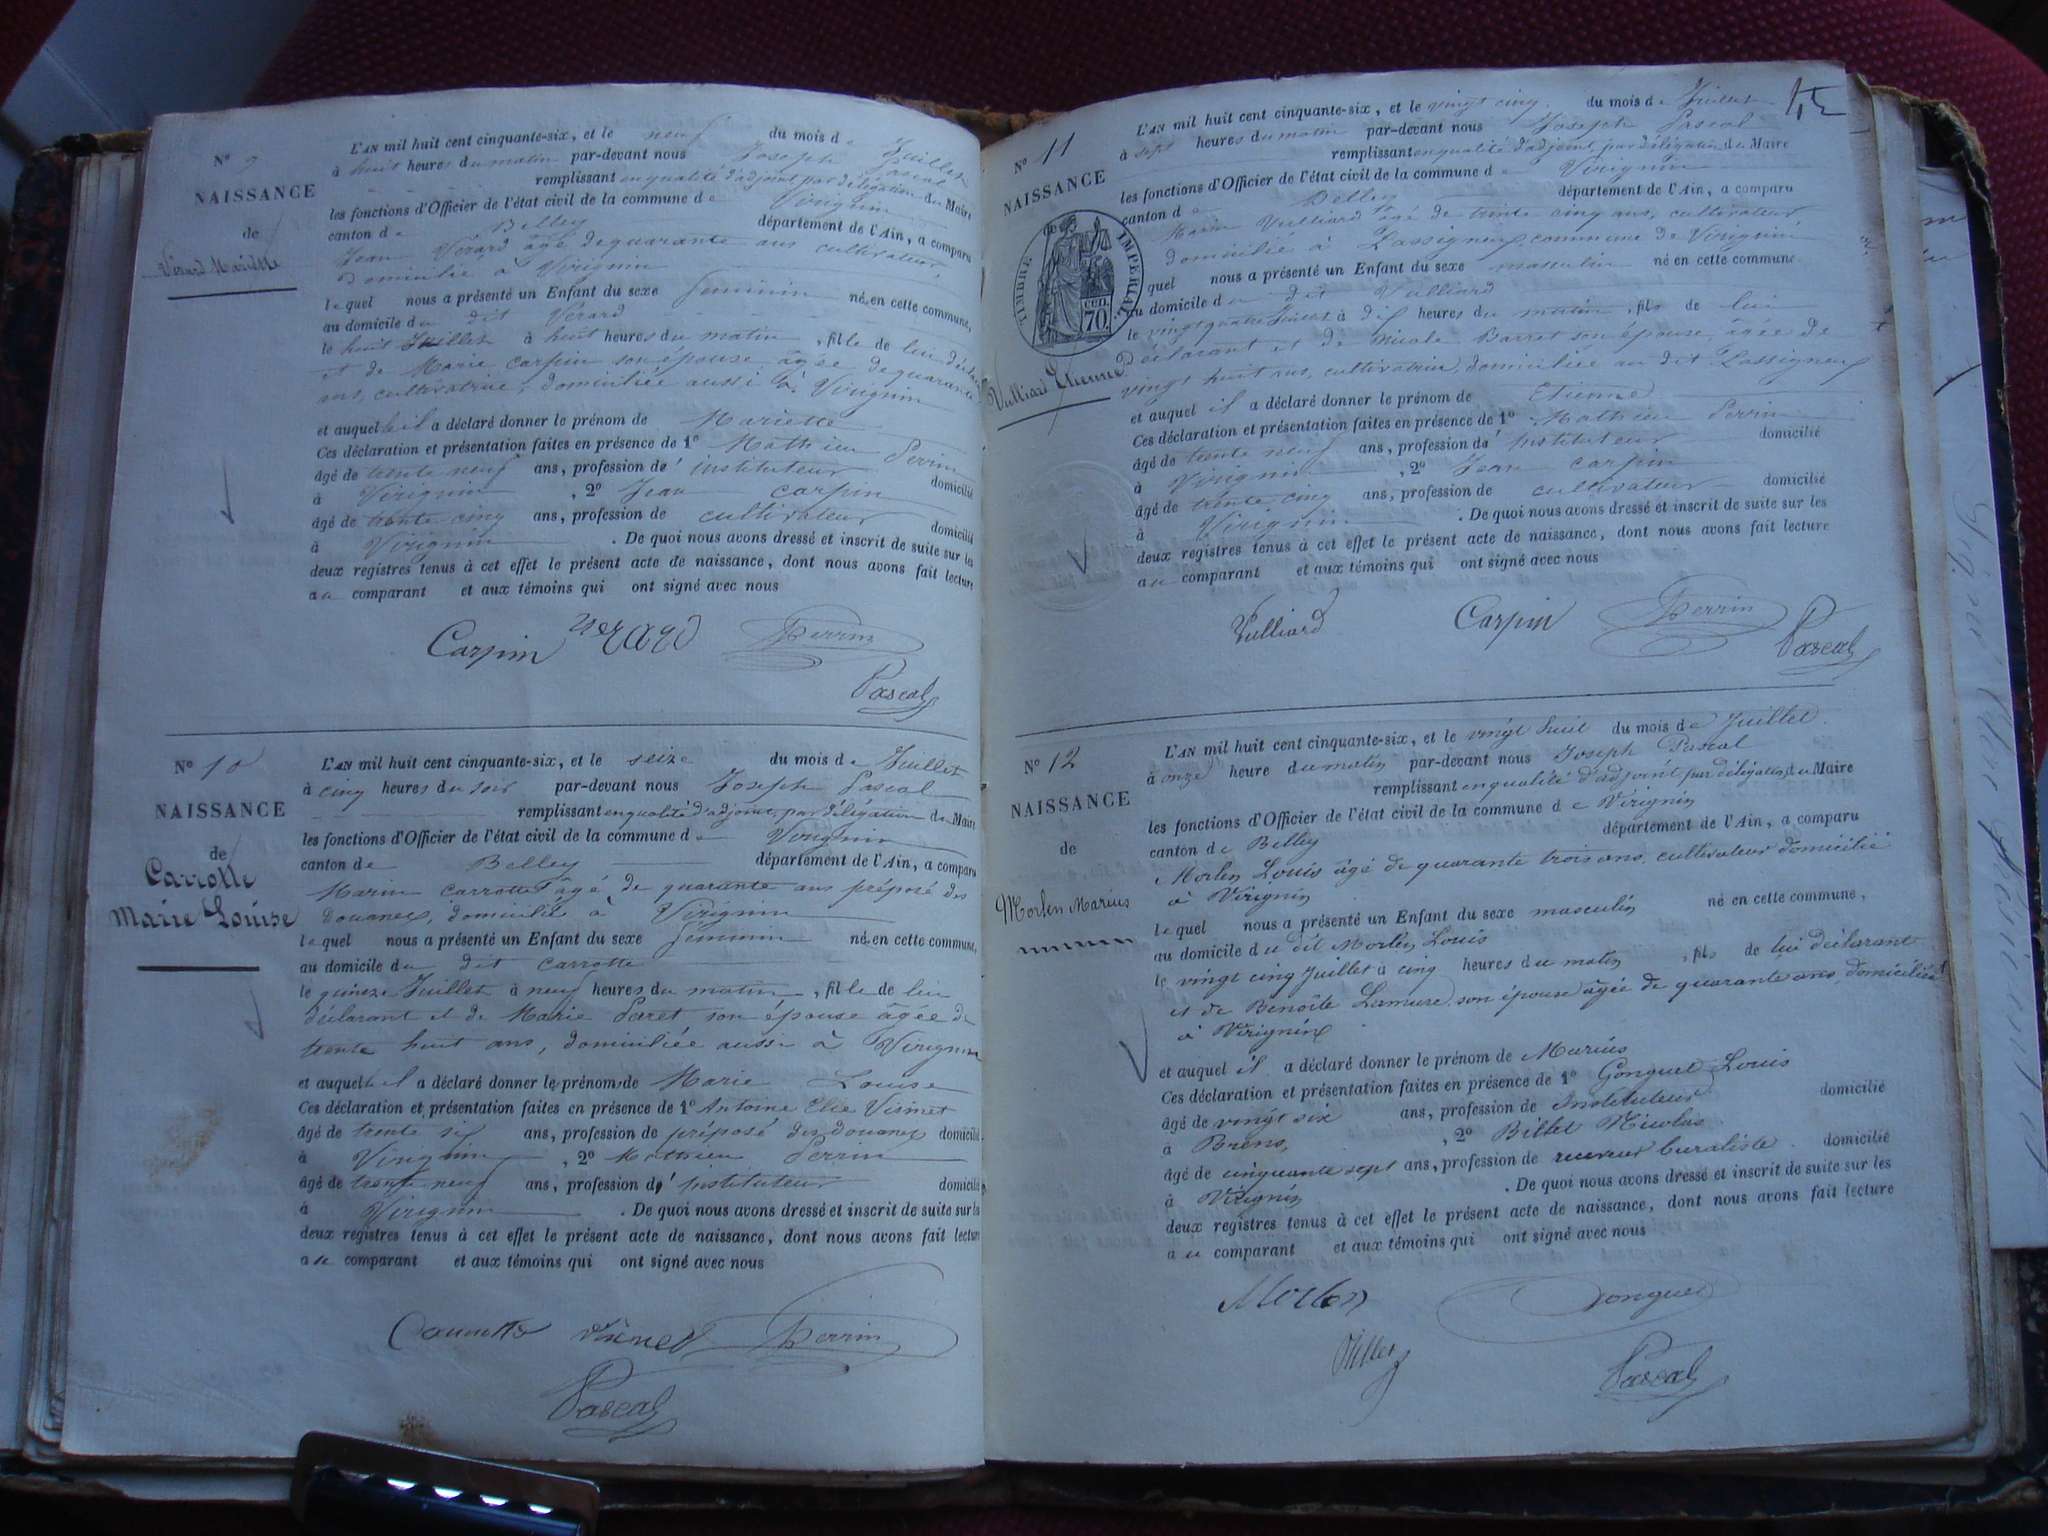 N° 9
NAISSANCE
de
Vérard Mariette
L'AN mil huit cent cinquante-six, et le neuf du mois de Juillet
à huit heures du matin par-devant nous Joseph Pascal
remplissant en qualité d'adjoint, par délégation du Maire
les fonctions d'Officier de l'état civil de la commune de Virignin
canton de Belley département de l'Ain, a comparu
Jean Vérard âgé de quarante ans cultivateur,
domicilié à Virignin
lequel nous a présenté un Enfant du sexe féminin née en cette commune,
au domicile du dit Vérard
le huit Juillet à huit heures du matin, fille de lui déclarant
et de Marie Carpin son épouse âgée de quarante
ans, cultivatrice, domiciliée aussi à Virignin
et auquel il a déclaré donner le prénom de Mariette
Ces déclaration et présentation faites en présence de 1° Mathieu Perrin
âgé de trente neuf ans, profession d'instituteur domicilié
à Virignin, 2° Jean Carpin
âgé de trente cinq ans, profession de cultivateur domicilié
à Virignin. De quoi nous avons dressé et inscrit de suite sur les
deux registres tenus à cet effet le présent acte de naissance, dont nous avons fait lecture
au comparant et aux témoins qui ont signé avec nous
Carpin verard Perrin
Pascal
N° 10
NAISSANCE
de
Carrotte
Marie Louise
L'AN mil huit cent cinquante-six, et le seize du mois de Juillet
à cinq heures du soir par-devant nous Joseph Pascal
remplissant en qualité d'adjoint, par délégation du Maire
les fonctions d'Officier de l'état civil de la commune de Virignin
canton de Belley département de l'Ain, a comparu
Marin Carrotte âgé de quarante ans préposé des
douanes, domicilié à Virignin
lequel nous a présenté un Enfant du sexe féminin née en cette commune,
au domicile du dit Carrotte
le quinze Juillet à neuf heures du matin, fille de lui
déclarant et de Marie Perret son épouse âgée de
trente huit ans, domiciliée aussi à Virignin
et auquel il a déclaré donner les prénoms de Marie Louise
Ces déclaration et présentation faites en présence de 1° Antoine Elie Visinet
âgé de trente six ans, profession de préposé des douanes domicilié
à Virignin, 2° Mathieu Perrin
âgé de trente neuf ans, profession d'instituteur domicilié
à Virignin. De quoi nous avons dressé et inscrit de suite sur les
deux registres tenus à cet effet le présent acte de naissance, dont nous avons fait lecture
au comparant et aux témoins qui ont signé avec nous
Carrotte Visinet Perrin
Pascal
N° 11
NAISSANCE
de
TIMBRE IMPÉRIAL
CEN. 70
Vulliard Etienne
L'AN mil huit cent cinquante-six, et le vingt cinq du mois de Juillet
à sept heures du matin par-devant nous Joseph Pascal
remplissant en qualité d'adjoint, par délégation du Maire
les fonctions d'Officier de l'état civil de la commune de Virignin
canton de Belley département de l'Ain, a comparu
Marin Vulliard âgé de trente cinq ans, cultivateur,
domicilié à Lassigneux commune de Virignin
quel nous a présenté un Enfant du sexe masculin né en cette commune
au domicile du dit Vulliard
le vingt quatre Juillet à dix heures du matin, fils de lui
déclarant et de Nicole Barret son épouse, âgée de
vingt huit ans, cultivatrice, domiciliée au dit Lassigneux
et auquel il a déclaré donner le prénom de Etienne
Ces déclaration et présentation faites en présence de 1° Mathieu Perrin
âgé de trente neuf ans, profession d'instituteur domicilié
à Virignin, 2° Jean Carpin
âgé de trente cinq ans, profession de cultivateur domicilié
à Virignin. De quoi nous avons dressé et inscrit de suite sur les
deux registres tenus à cet effet le présent acte de naissance, dont nous avons fait lecture
au comparant et aux témoins qui ont signé avec nous
Vulliard Carpin Perrin
Pascal
N° 12
NAISSANCE
de
Morlen Marius
L'AN mil huit cent cinquante-six, et le vingt huit du mois de Juillet.
à onze heure du matin par-devant nous Joseph Pascal
remplissant en qualité d'adjoint par délégation du Maire
les fonctions d'Officier de l'état civil de la commune de Virignin
canton de Belley département de l'Ain, a comparu
Morlen Louis âgé de quarante trois ans, cultivateur domicilié
à Virignin
lequel nous a présenté un Enfant du sexe masculin né en cette commune,
au domicile du dit Morlen Louis
le vingt cinq Juillet à cinq heures du matin, fils de lui déclarant
et de Benoîte Lamure son épouse âgée de quarante ans, domiciliée
à Virignin
et auquel il a déclaré donner le prénom de Marius
Ces déclaration et présentation faites en présence de 1° Gonguet Louis
âgé de vingt six ans, profession de Instituteur domicilié
à Brens, 2° Billet Nicolas
âgé de cinquante sept ans, profession de receveur buraliste domicilié
à Virignin. De quoi nous avons dressé et inscrit de suite sur les
deux registres tenus à cet effet le présent acte de naissance, dont nous avons fait lecture
au comparant et aux témoins qui ont signé avec nous
Morlen Gonguet
Billet Pascal